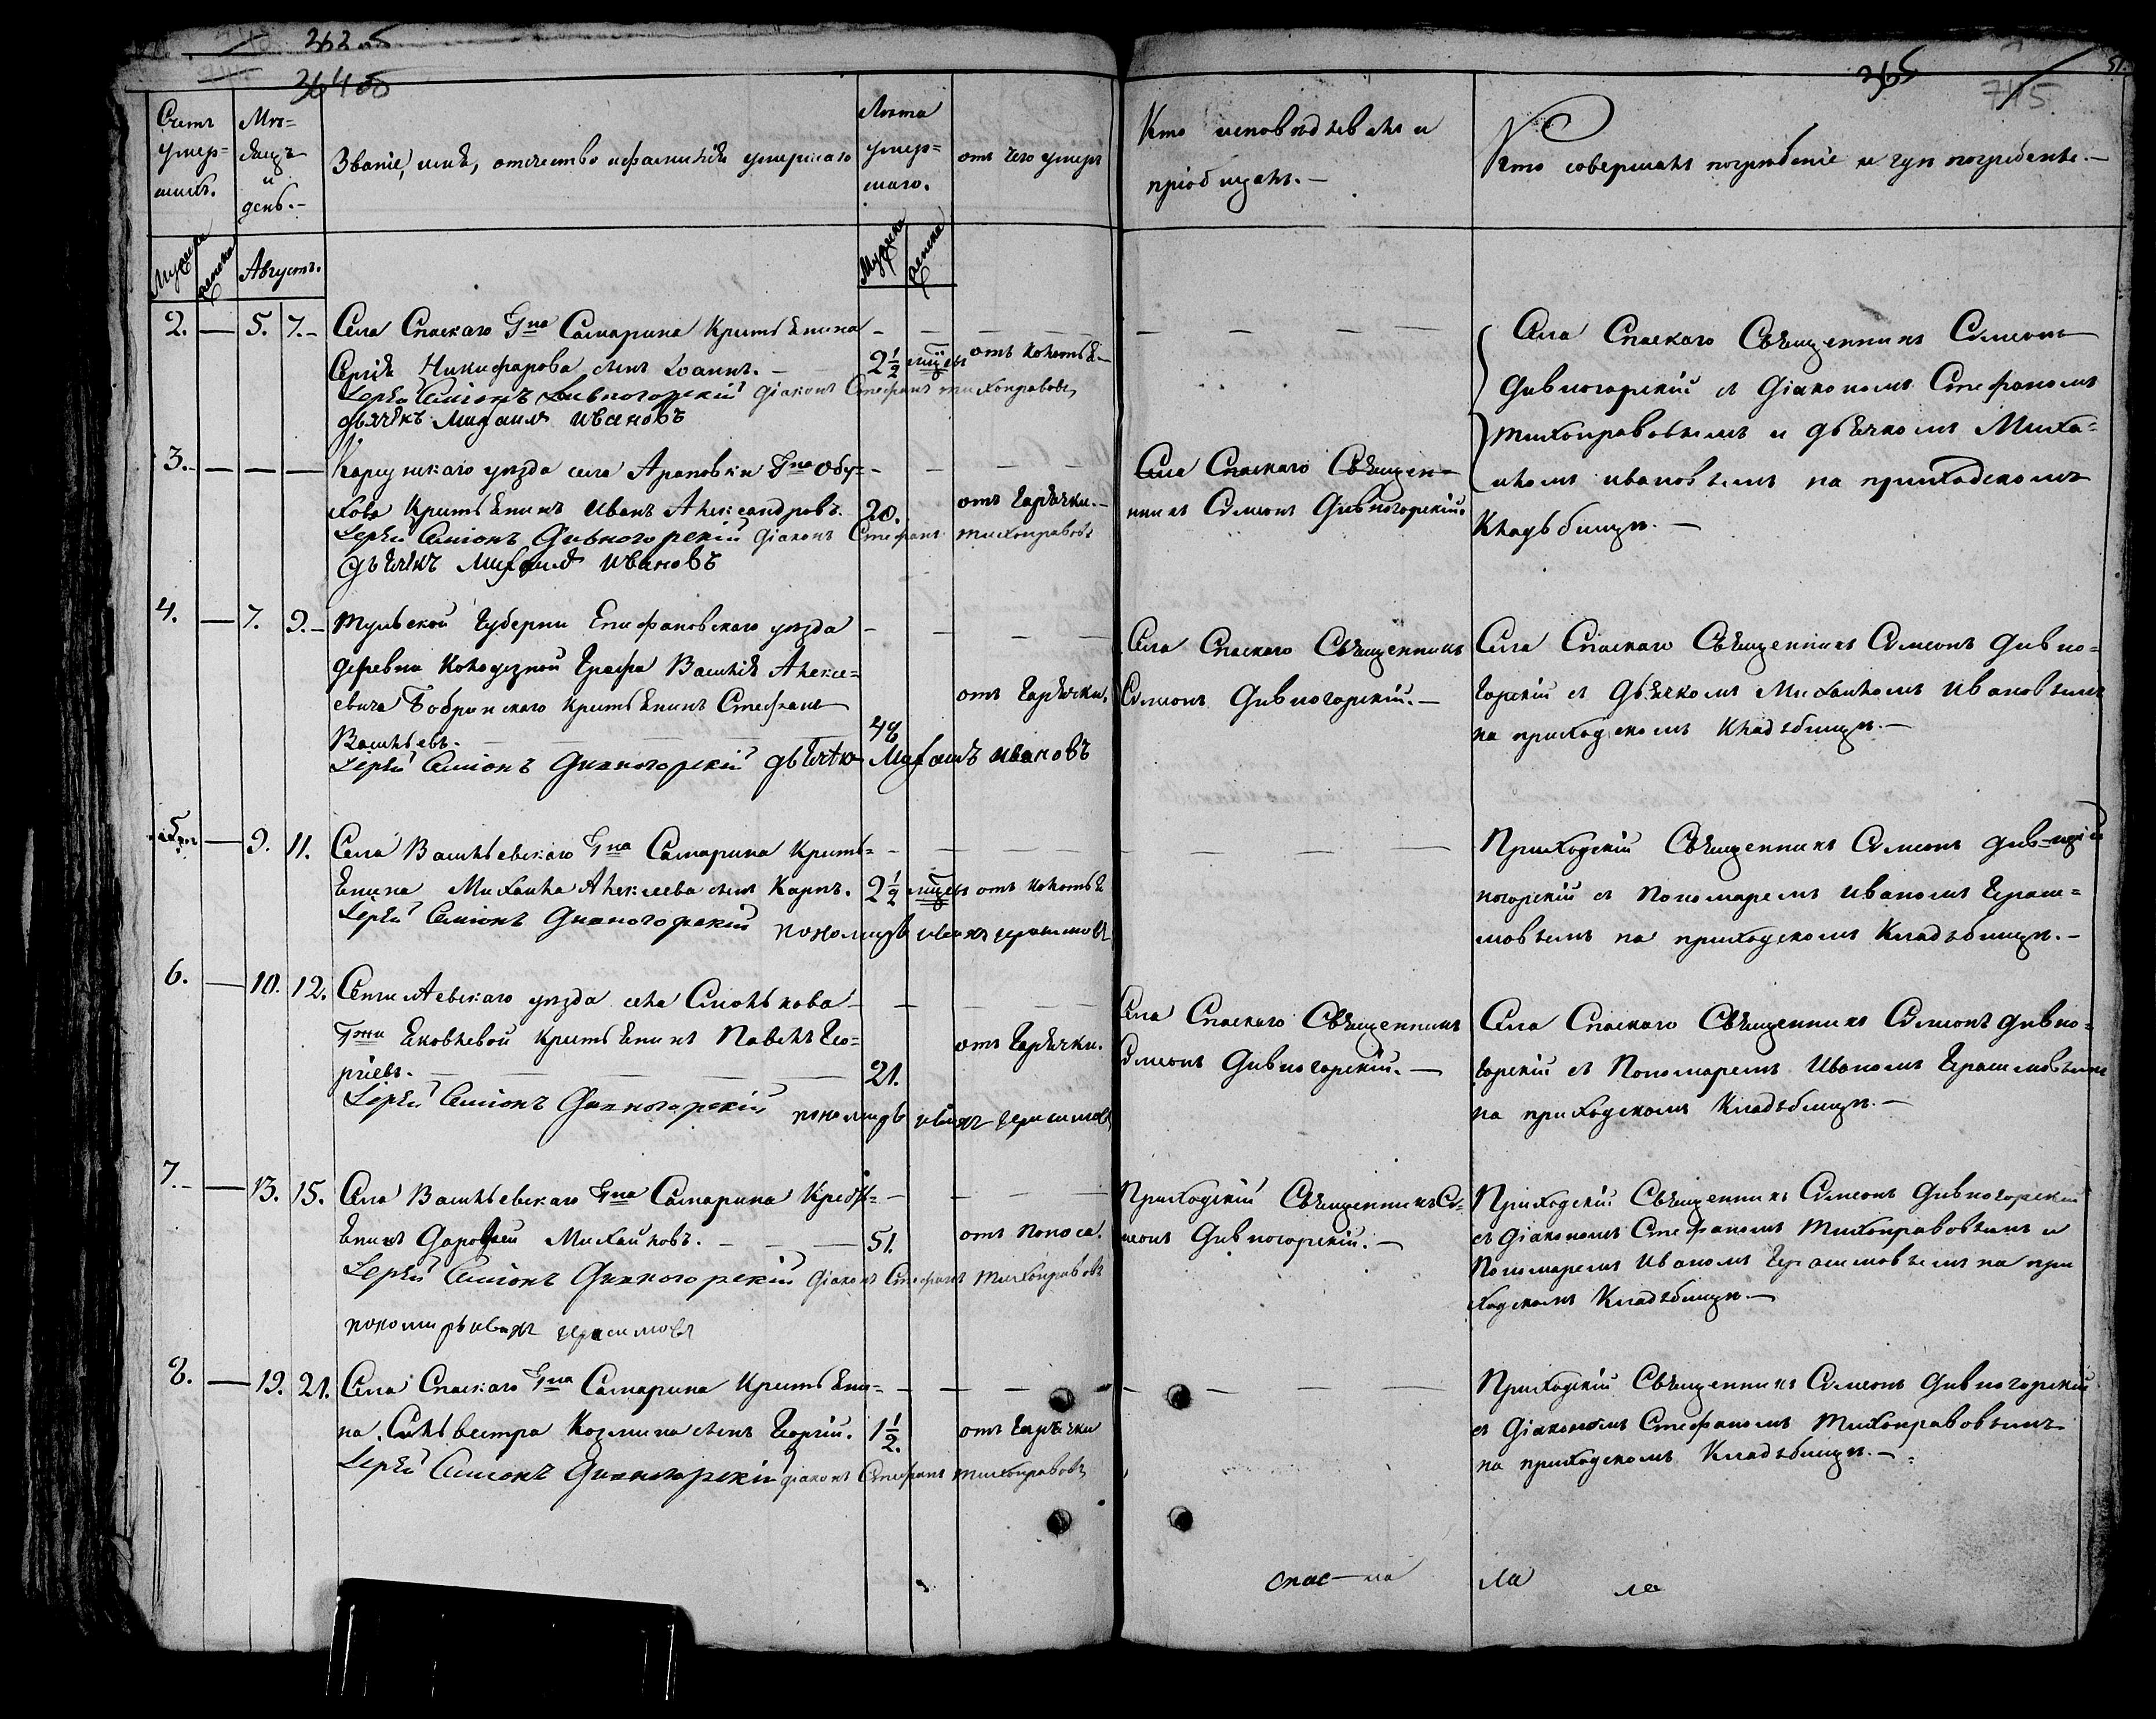 362 об
364 об
365
745
51.
Счетъ умер-шихъ.
Мѣ-сяцъ и день.-
Званіе, имя, отчество и фамилія умершаго
Лѣта умер-шаго.
отъ чего умеръ
Кто исповѣдывалъ и пріобщалъ.-
Кто совершалъ погребеніе и гдѣ погребенъ.-
Мужска
женска
Августъ.
Мужска
женска
2. — 5. 7.- Села Спаскаго Гна Самарина Крестьянина
Сергія Никифарова сынъ Іоаннъ.- 2½ мцы отъ колотья.-
Іерей Симіонъ Дивногорскій діаконъ Стефанъ тихонравовъ
дьячѣкъ Михаилъ ивановъ
Села Спаскаго Священникъ Симеонъ
Дивногорскій съ Діакономъ Стефаномъ
тихонравовымъ и дьячкомъ Миха-
иломъ ивановымъ на приходскомъ
Кладьбищѣ.-
3.- — — — Карсунскаго уѣзда села Араповки Гна Обу-
хова Крестьянинъ Иванъ Александровъ. 20. отъ Гарячки.-
Іерей Симіонъ Дивногорскій діаконъ Стефанъ тихонравовъ
дьячѣкъ Михаилъ ивановъ
Села Спаскаго Священ-
никъ Симеонъ Дивногорскій.
4. — 7. 9.- Тульской Губерни Епифановскаго уѣзда
деревни Колодезной Графа Василія Алексе-
евича Бобринскаго Крестьянинъ Стефанъ отъ Гарячки.
Васильевъ. 48
Іерей Симіонъ Дивногорскій дьячѣкъ Михаилъ ивановъ
Села Спаскаго Священникъ
Симеонъ Дивногорскій.-
Села Спаскаго Священникъ Симеонъ Дивно-
горскій съ Дьячкомъ Михаиломъ Ивановымъ
на приходскомъ Кладьбищѣ.-
5 — 9. 11. Села Васильевскаго Гна Самарина Кресть-
янина Михаила Алексеева сынъ Карпъ. 2½ мцы отъ колотья
Іерей Симіонъ Дивногорскій пономарь иванъ герасимовъ
Приходскій Священникъ Симеонъ Див-
ногорскій съ Пономаремъ Иваномъ Гераси-
мовымъ на приходскомъ Кладьбищѣ.-
6. — 10. 12. Сенгилѣевскаго уѣзда села Смолькова
Гжи Яковлевой Крестьянинъ Павелъ Гео- отъ Гарячки.
ргіевъ. 21.
Іерей Симіонъ Дивногорскій пономарь иванъ герасимовъ
Села Спаскаго Священникъ
Симеонъ Дивногорскій.-
Села Спаскаго Священникъ Симеонъ Дивно-
горскій съ Пономаремъ Иваномъ Герасимовымъ
на приходскомъ Кладьбищѣ.-
7.- — 13. 15. Села Васильевскаго Гна Самарина Кресть-
янинъ Дарофей Михайловъ. 51. отъ Поноса.
Іерей Симіонъ Дивногорскій діаконъ Стефанъ тихонравовъ
пономарь иванъ герасимовъ
Приходскій Священникъ Си-
меонъ Дивногорскій.-
Приходскій Священникъ Симеонъ Дивногорскій
съ діакономъ Стефаномъ Тихонравовымъ и
Пономаремъ Иваномъ Герасимовымъ на при
ходскомъ Кладьбищѣ.-
8. — 19. 21. Села Спаскаго Гна Самарина Крестьяни-
на Сильвестра Козмина сынъ Георгій. 1½. отъ Гарячки
Іерей Симіонъ Дивногорскій діаконъ Стефанъ тихонравовъ
Приходскій Священникъ Симеонъ Дивногорскій
съ Діакономъ Стефаномъ Тихонравовымъ
на приходскомъ Кладьбищѣ.-
спас-ка ла ла